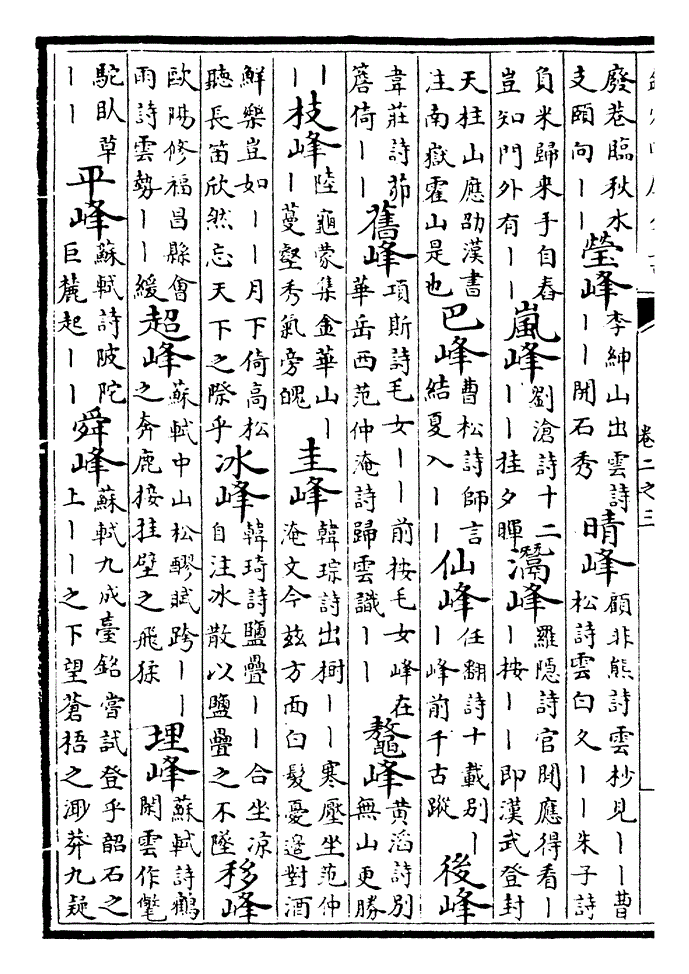 卷二之三
廢巷臨秋水
支頤向丨丨
瑩峰
李紳山出雲詩
丨丨開石秀
晴峰
顧非熊詩雲杪見丨丨曹
松詩雲白久丨丨朱子詩
負米歸来手自舂
豈知門外有丨丨
嵐峰
劉滄詩十二
丨丨挂夕暉
灊峰
羅隱詩官閒應得看丨
丨按丨丨即漢武登封
天柱山應劭漢書
注南嶽霍山是也
巴峰
曹松詩師言
結夏入丨丨
仙峰
任翻詩十載别丨
丨峰前千古蹤
後峰
韋莊詩茆
簷倚丨丨
舊峰
項斯詩毛女丨丨前按毛女峰在
華岳西范仲淹詩歸雲識丨丨
鼇峰
黄滔詩别
無山更勝
丨
丨
枝峰
陸龜蒙集金華山丨
丨蔓壑秀氣旁魄
圭峰
韓琮詩出樹丨丨寒壓坐范仲
淹文今兹方面白髪憂邉對酒
鮮樂豈如丨丨月下倚高松
聽長笛欣然忘天下之際乎
冰峰
韓琦詩鹽疊丨丨合坐凉
自注冰散以鹽疊之不墜
移峰
歐陽修福昌縣會
雨詩雲勢丨丨緩
超峰
蘇軾中山松醪賦跨丨丨
之奔鹿接挂壁之飛猱
埋峰
蘇軾詩鶴
閑雲作氅
駝臥草
丨丨
平峰
蘇軾詩陂陀
巨麓起丨丨
舜峰
蘇軾九成臺銘嘗試登乎韶石之
上丨丨之下望蒼梧之渺莽九疑